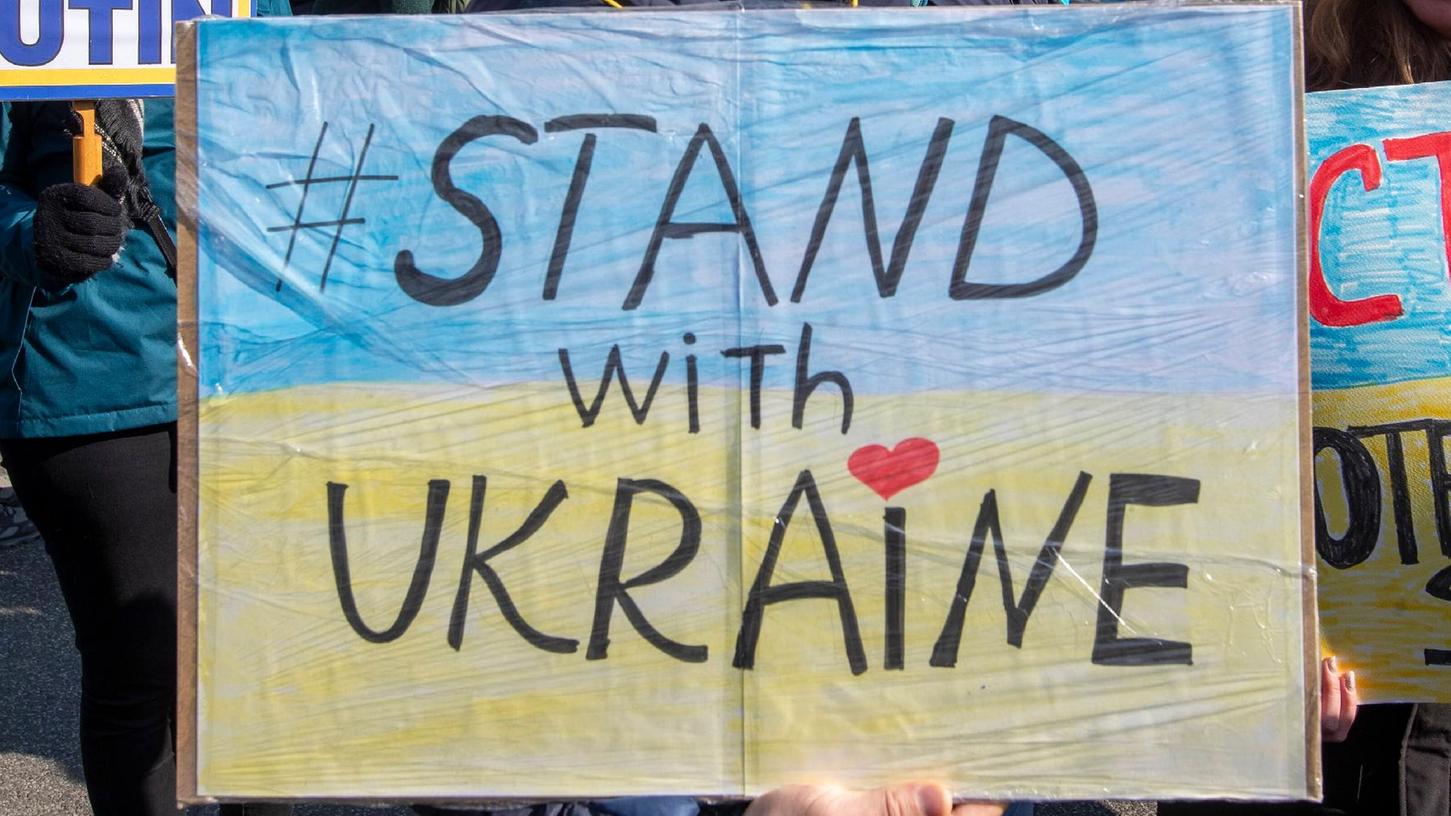 UTIN
#STAND
with
UKRAiNE
CT
OTE